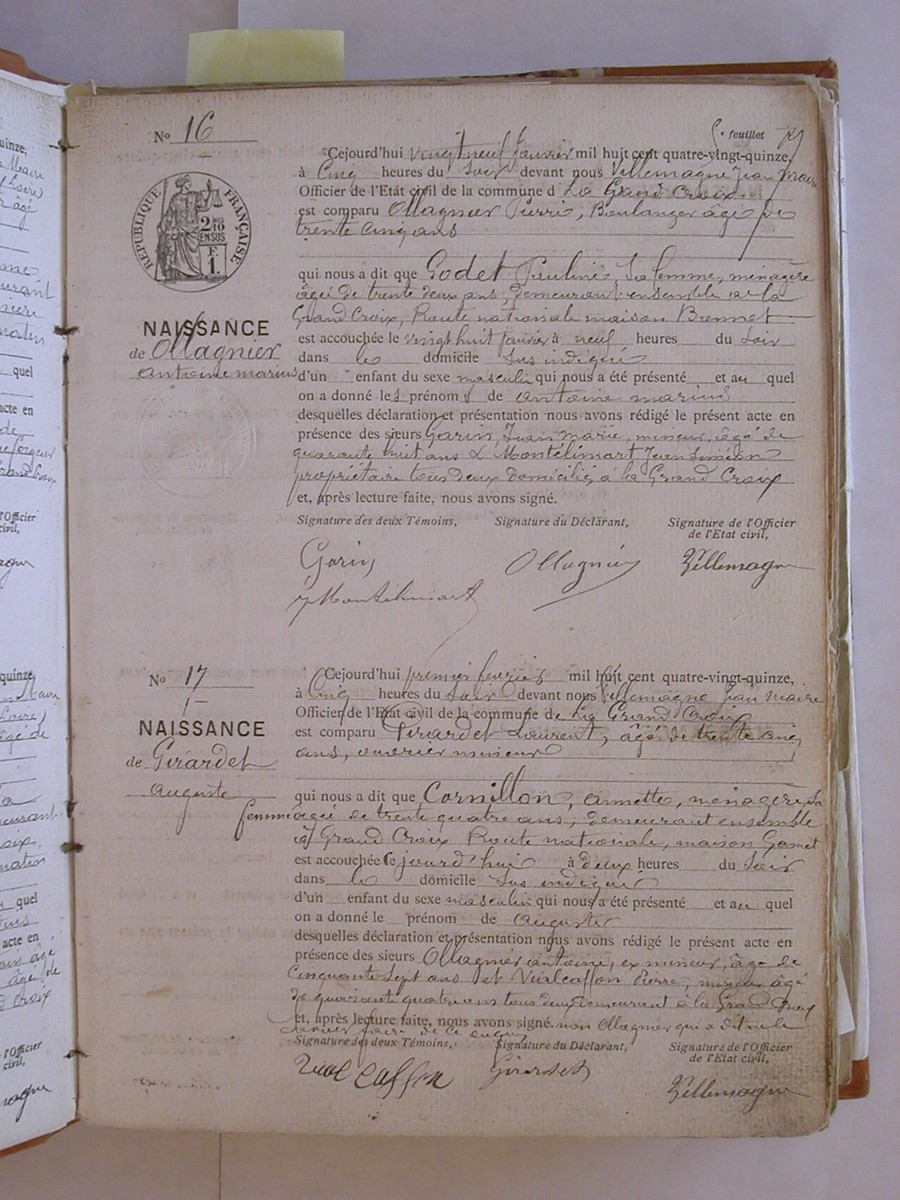 No 16
5e feuillet
Cejourd'hui vingt neuf Janvier mil huit cent quatre-vingt-quinze,
à Cinq heures du Soir devant nous Villemagne Jean Maire
Officier de l'Etat civil de la commune d La Grand Croix
est comparu Ollagnier Pierre, Boulanger âgé de
trente cinq ans
RÉPUBLIQUE FRANÇAISE
2/10 EN SUS
F. 1
qui nous a dit que Godet Pauline, Sa femme, ménagère
âgée de trente deux ans, demeurant ensemble à la
Grand Croix, Route nationale maison Brennet
NAISSANCE
de Ollagnier
antoine marius
est accouchée le vingt huit Janvier à neuf heures du Soir
dans le domicile Sus indiqué
d'un enfant du sexe masculin qui nous a été présenté et au quel
on a donné les prénoms de antoine marius
desquelles déclaration et présentation nous avons rédigé le présent acte en
présence des sieurs Garin, Jean Marie, mineur, âgé de
quarante huit ans & Montélimart Jean Siméon
propriétaire tous deux domiciliés à la Grand Croix
et, après lecture faite, nous avons signé.
Signature des deux Témoins, Signature du Déclarant, Signature de l'Officier de l'Etat civil,
Garin Ollagnier Villemagne
Montélimart
No 17
Cejourd'hui premier février mil huit cent quatre-vingt-quinze,
à Cinq heures du Soir devant nous Villemagne Jean Maire
Officier de l'Etat civil de la commune de La Grand Croix
est comparu Girardet Laurent, âgé de trente cinq
ans, ouvrier mineur
NAISSANCE
de Girardet
Auguste
qui nous a dit que Cornillon, Annette, ménagère, Sa
femme âgée de trente quatre ans, demeurant ensemble
à Grand Croix Route nationale, maison Gamet
est accouchée Ce jourd'hui à deux heures du Soir
dans le domicile Sus indiqué
d'un enfant du sexe masculin qui nous a été présenté et au quel
on a donné le prénom de Auguste
desquelles déclaration et présentation nous avons rédigé le présent acte en
présence des sieurs Ollagnier antoine, ex mineur, âgé de
Cinquante Sept ans et Vialcasson Pierre, mineur âgé
de quarante quatre ans tous deux demeurant à la Grand Croix
et, après lecture faite, nous avons signé. non Ollagnier qui a dit ne le
Savoir faire de ce enquis
Signature des deux Témoins, Signature du Déclarant, Signature de l'Officier de l'Etat civil,
Vial casson Girardet Villemagne